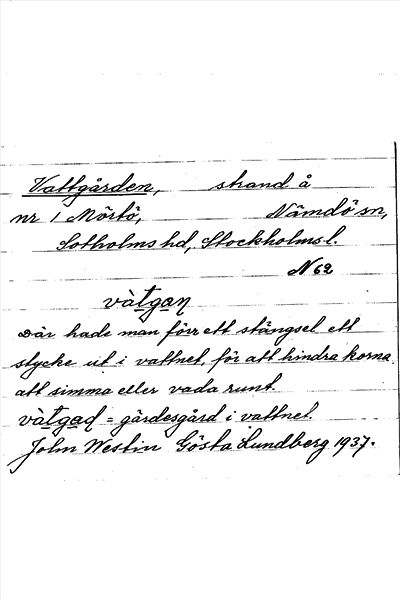 Vattgården, strand å
nr 1 Mörtö, Nämdö sn,
Sotholms hd, Stockholms l.
N 62
vàtgaṇ
Där hade man förr ett stängsel ett
stycke ut i vattnet, för att hindra korna
att simma eller vada runt.
vàtgaḍ = gärdesgård i vattnet.
John Westin Gösta Lundberg 1937.